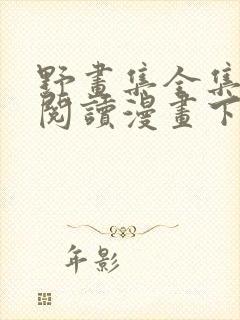 野畫集全集
閱讀漫畫下
年影